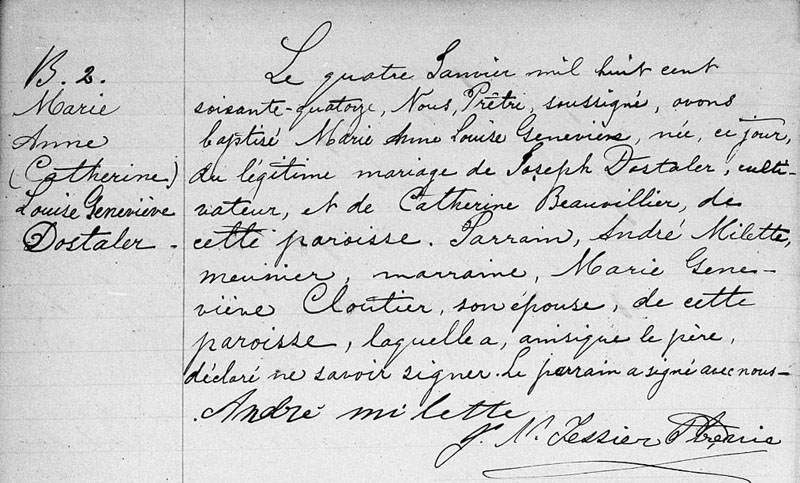 B. 2.
Marie
Anne
(Catherine)
Louise Geneviève
Dostaler.
Le quatre Janvier mil huit cent
soixante-quatorze, Nous, Prêtre, soussigné, avons
baptisé Marie Anne Louise Geneviève, née, ce jour,
du légitime mariage de Joseph Dostaler, culti-
vateur, et de Catherine Beauvillier, de
cette paroisse. Parrain, André Milette,
meunier, marraine, Marie Gene-
viève Cloutier, son épouse, de cette
paroisse, laquelle a, ainsique le père,
déclaré ne savoir signer. Le parrain a signé avec nous-
André milette
J. N. Tessier Ptre